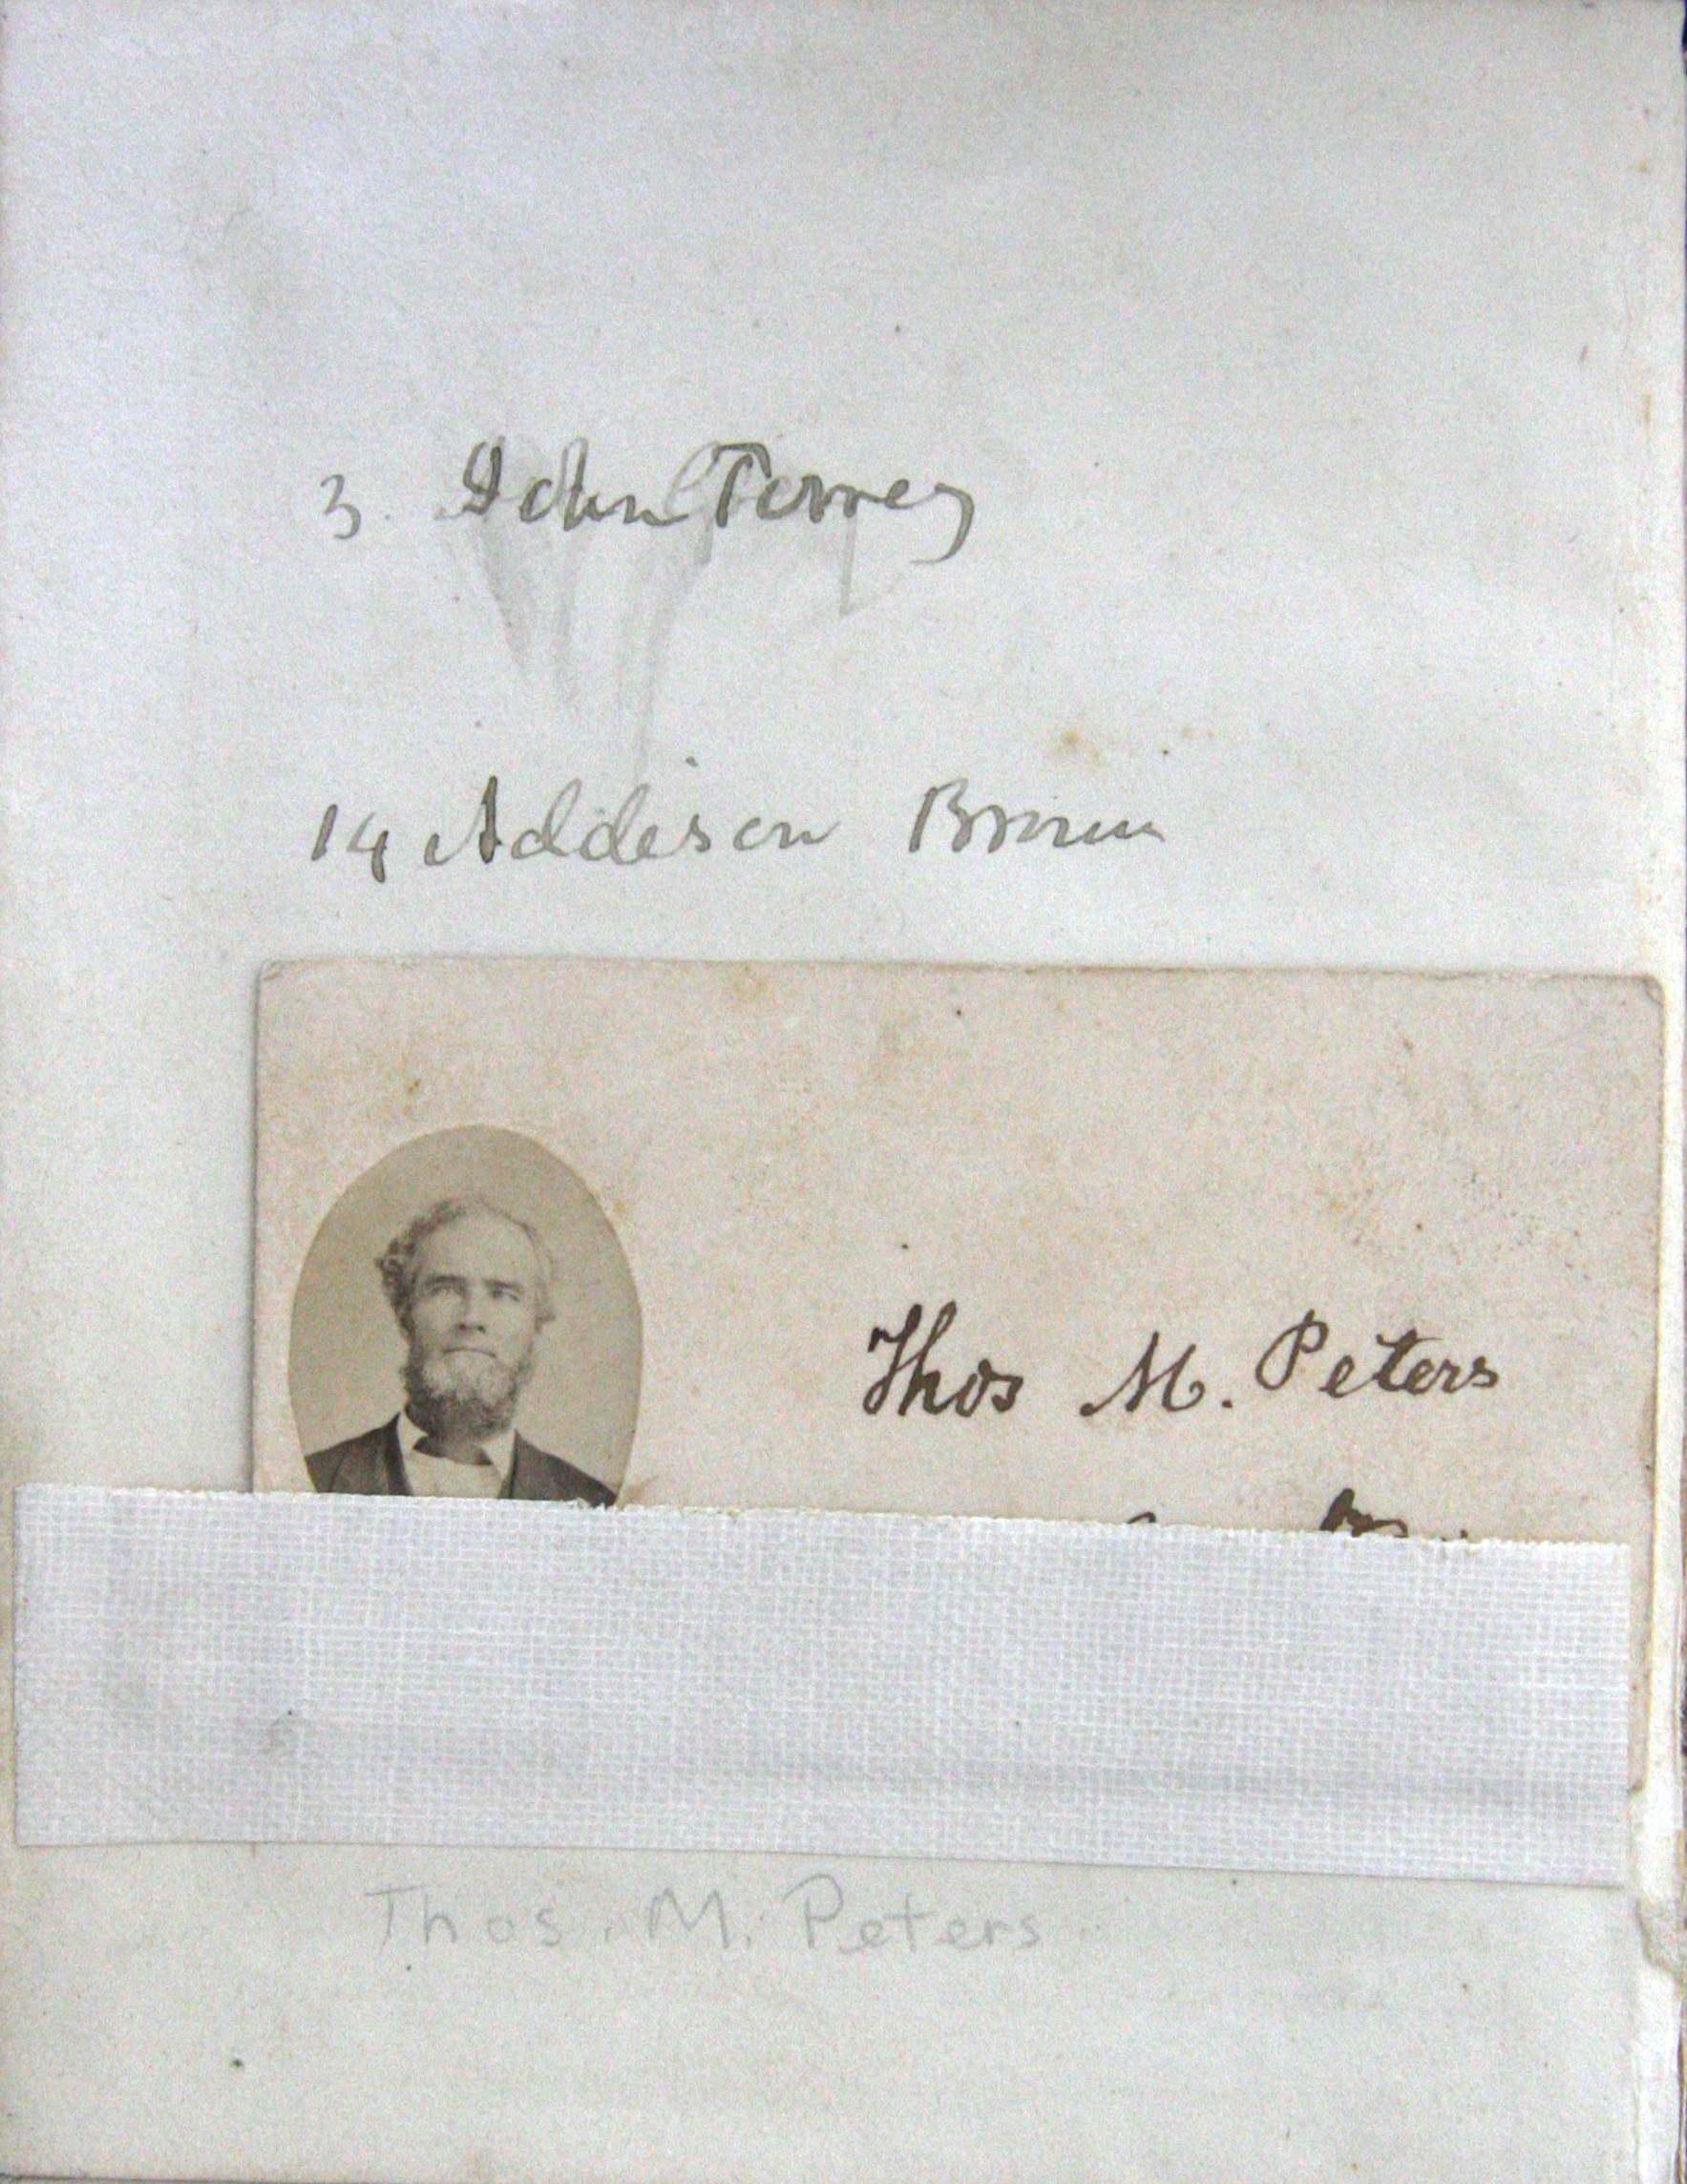 3 John Torrey
14 Addison Brown
Thos M. Peters
Thos. M. Peters